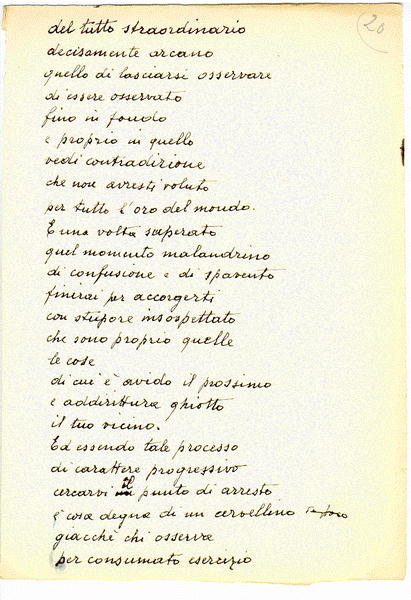 20
del tutto straordinario
decisamente arcano
quello di lasciarsi osservare
di essere osservato
fino in fondo
e proprio in quello
vedi contradizione
che non avresti voluto
per tutto l'oro del mondo.
E una volta superato
quel momento malandrino
di confusione e di spavento
finirai per accorgerti
con stupore insospettato
che sono proprio quelle
le cose
di cui è avido il prossimo
e addirittura ghiotto
il tuo vicino.
Ed essendo tale processo
di carattere progressivo
cercarvi il punto di arresto
è cosa degna di un cervellino
giacchè chi osserva
per consumato esercizio